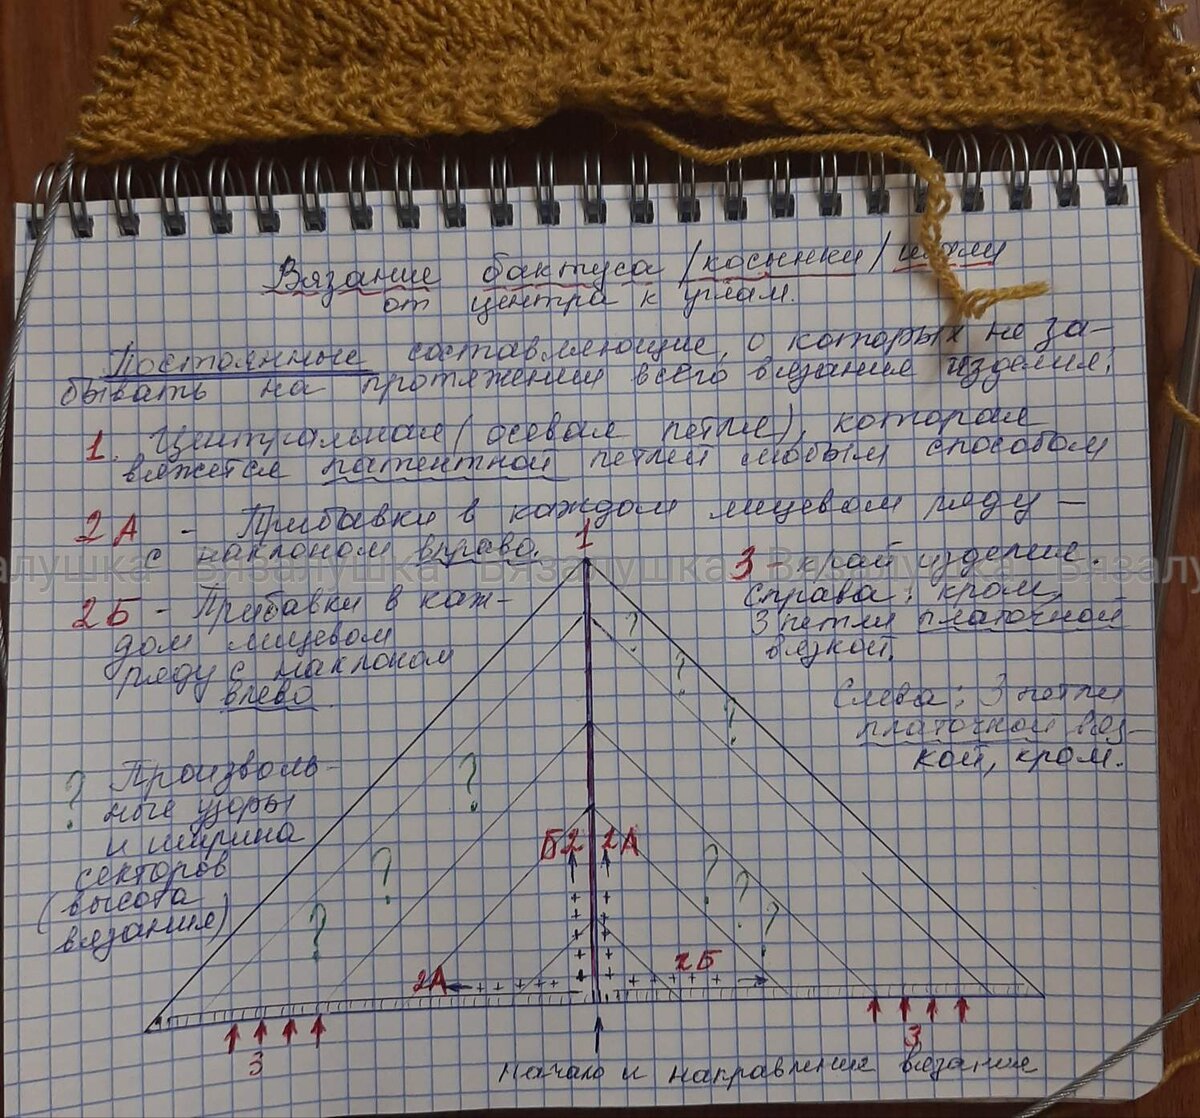 Вязание бактуса /косынки/ шали
от центра к углам.
Постоянные составляющие, о которых не за-
бывать на протяжении всего вязания изделия:
1. Центральная (осевая петля), которая
вяжется патентной петлей любым способом
2А - Прибавки в каждом лицевом ряду —
с наклоном вправо.
2Б - Прибавки в каж-
дом лицевом
ряду с наклоном
влево
1
3 - край изделия.
Справа: кром,
3 петли платочной
вязкой.
Слева: 3 петли
платочной вяз-
кой, кром.
? Произволь-
ные узоры
и ширина
секторов
(высота
вязания)
? ? ?
? ? ?
? ? ?
Б2 2А
2А 2Б
3 3
Начало и направление вязания
алушка Вязалушка Вязалушка Вязалушка Вязалу